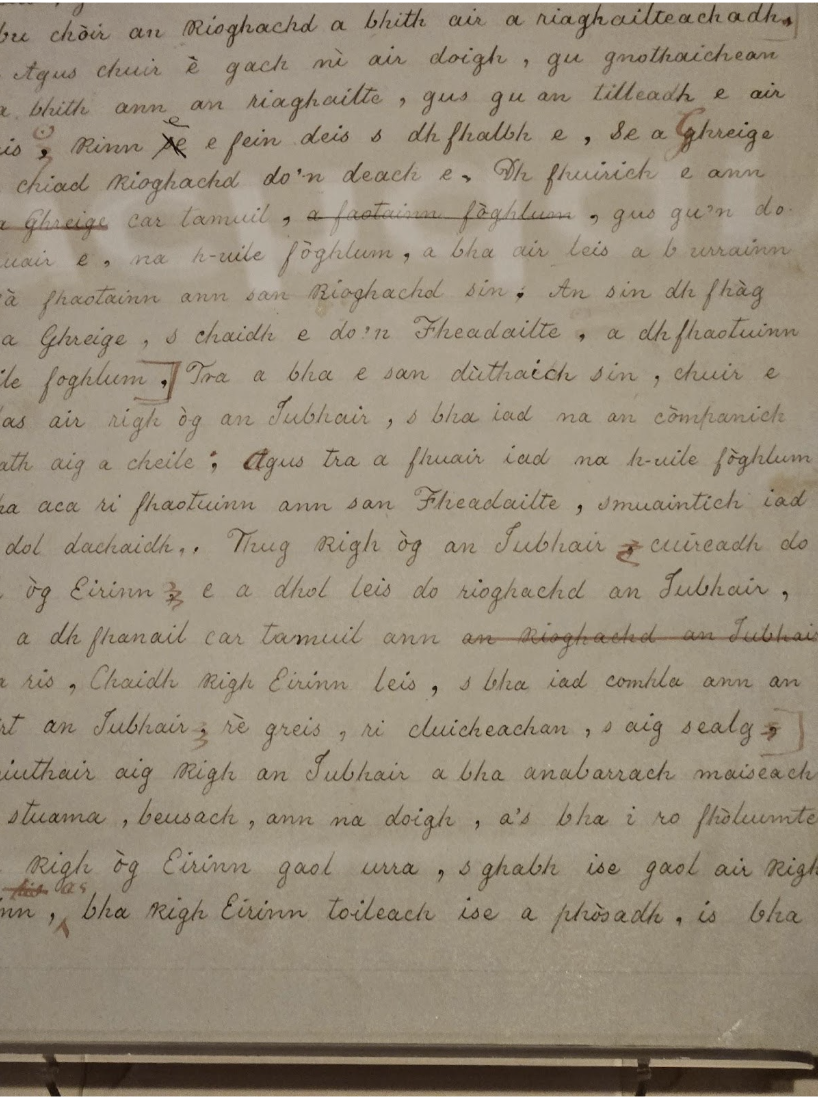 bu chòir an Rioghachd a bhith air a riaghailteachadh.
Agus chuir è gach nì air doigh, gu gnothaichean
a bhith ann an riaghailte, gus gu an tilleadh e air
is; Rinn e e fein deis s dh fhalbh e, Se a Ghreige
chiad Rioghachd do'n deach e. Dh fhuirich e ann
a Ghreige car tamuil, a faotainn fòghlum, gus gu'n do
uair e, na h-uile fòghlum, a bha air leis a b urrainn
à fhaotainn ann san Rioghachd sin; An sin dh fhàg
a Ghreige, s chaidh e do'n Fheadailte, a dh fhaotuinn
ile foghlum,] Tra a bha e san dùthaich sin, chuir e
as air righ òg an Iubhair, s bha iad na an còmpanich
ath aig a cheile; Agus tra a fhuair iad na h-uile fòghlum
ha aca ri fhaotuinn ann san Fheadailte, smuaintich iad
dol dachaidh,. Thug Righ òg an Iubhair, cuireadh do
òg Eirinn, e a dhol leis do rioghachd an Iubhair,
a dh fhanail car tamuil ann an Rioghachd an Iubhai
a ris, Chaidh Righ Eirinn leis, s bha iad comhla ann an
rt an Iubhair, rè greis, ri cluicheachan, s aig sealg,]
iuthair aig Righ an Iubhair a bha anabarrach maiseach
stuama, beusach, ann na doigh, a's bha i ro fhòluumte
Righ òg Eirinn gaol urra, s ghabh ise gaol air Righ
as
inn, bha Righ Eirinn toileach ise a phòsadh, is bha